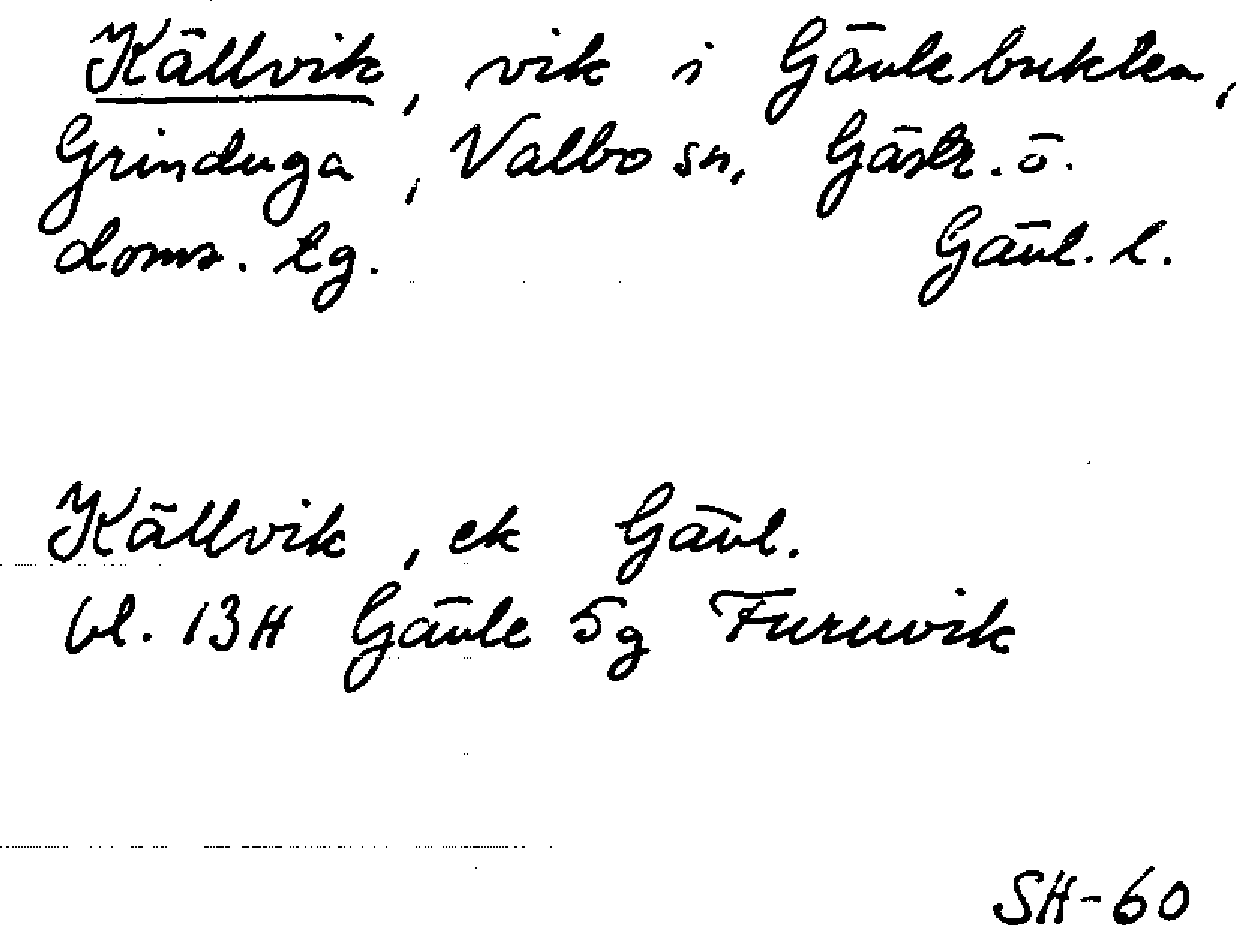 Källvik, vik i Gävlebukten,
Grinduga, Valbo sn, Gästr. ö.
doms. tg. Gävl. l.
Källvik, ek Gävl.
bl. 13H Gävle 5g Furuvik
SH-60